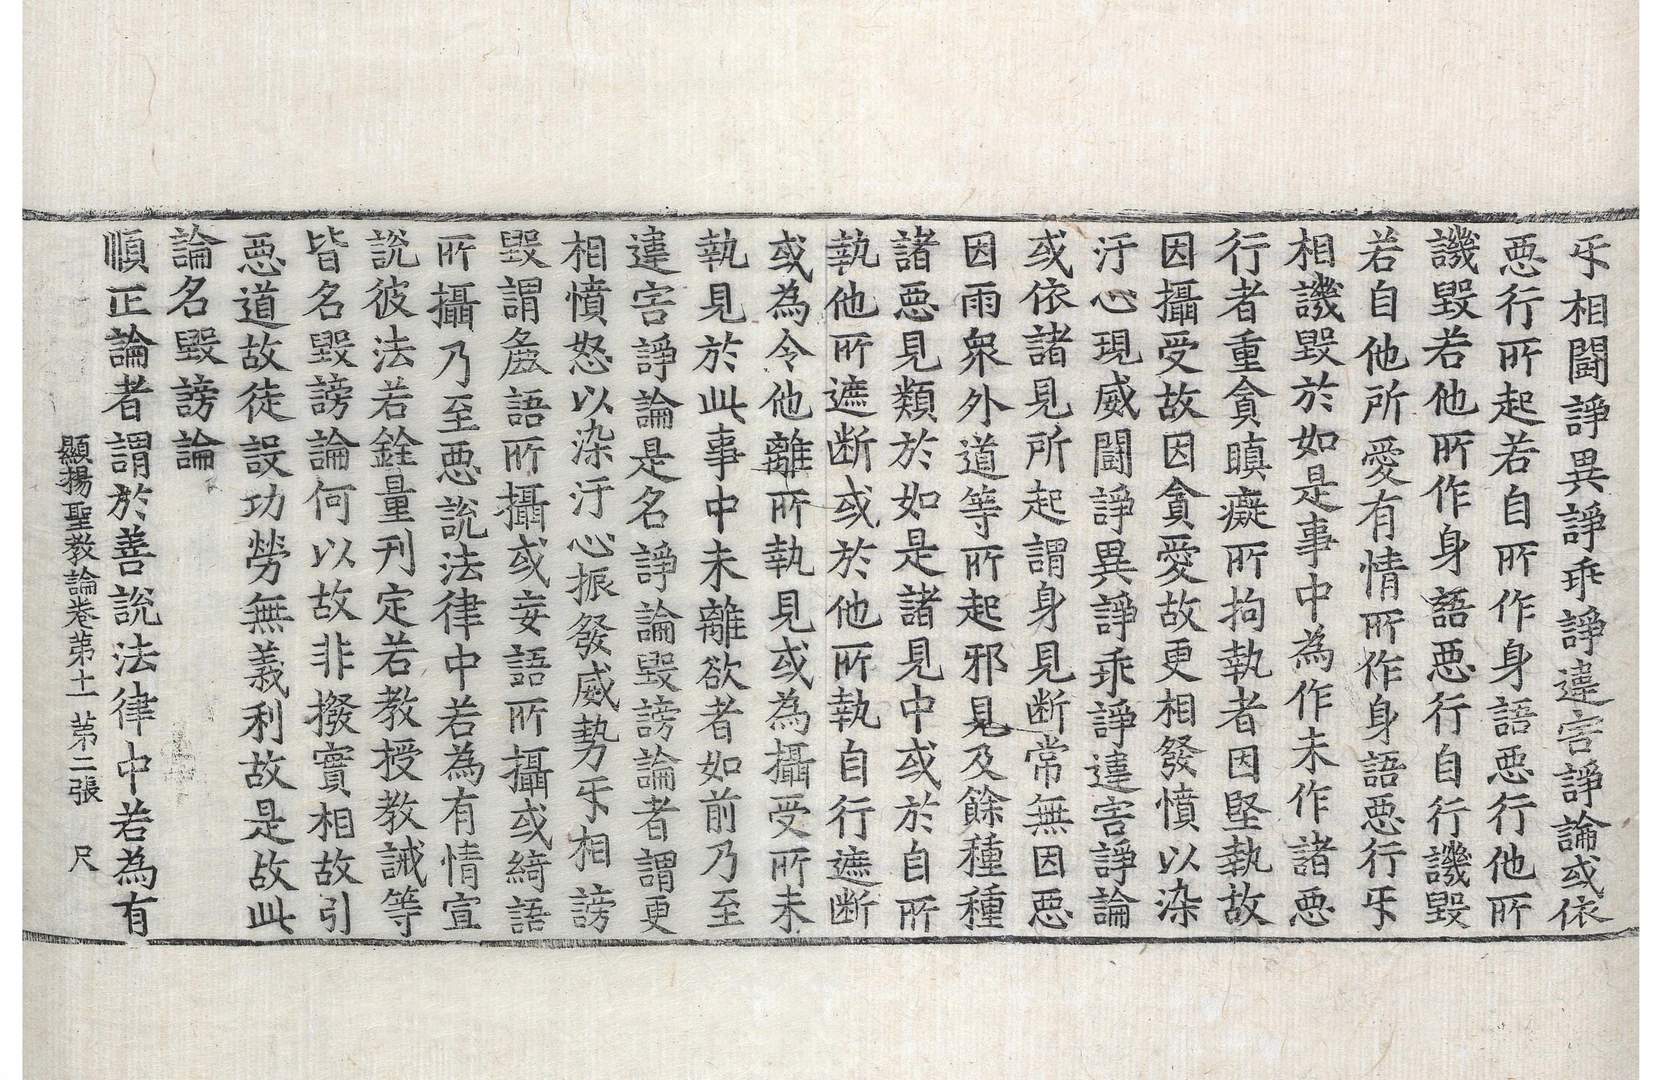 㸦相鬪諍異諍乖諍違害諍論或依
惡行所起若自所作身語惡行他所
譏毀若他所作身語惡行自行譏毀
若自他所愛有情所作身語惡行㸦
相譏毀於如是事中為作未作諸惡
行者重貪瞋癡所拘執者因堅執故
因攝受故因貪愛故更相發憤以染
汙心現威鬪諍異諍乖諍違害諍論
或依諸見所起謂身見断常無因惡
因雨衆外道等所起邪見及餘種種
諸惡見類於如是諸見中或於自所
執他所遮断或於他所執自行遮断
或為令他離所執見或為攝受所未
執見於此事中未離欲者如前乃至
違害諍論是名諍論毀謗論者謂更
相憤怒以染汙心振發威勢㸦相謗
毀謂麁語所攝或妄語所攝或綺語
所攝乃至惡說法律中若為有情宣
說彼法若銓量刊定若教授教誡等
皆名毀謗論何以故非撥實相故引
惡道故徒設功勞無義利故是故此
論名毀謗論
順正論者謂於善說法律中若為有
顯揚聖教論卷第十一 第二張 尺